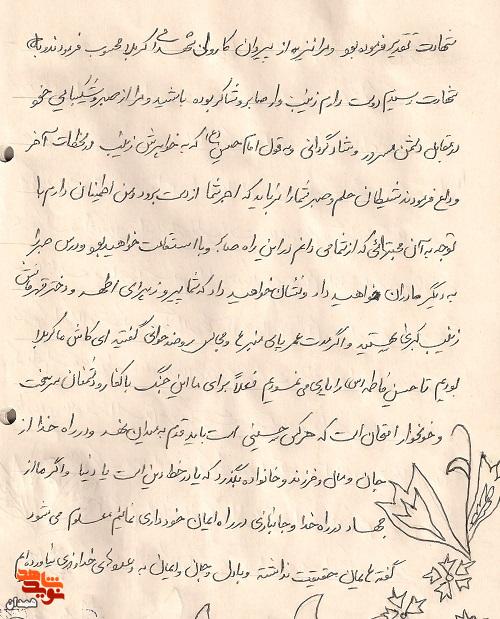 شهادت تقدیر فرموده بود و مرا نیز به از پیروان کاروان شهدای کربلا محسوب فرمودند به
شهادت رسیدم دوست دارم زینب وار صابر و شاکر بوده باشید و مرا از صبر و شکیبایی خود
در مقابل دشمن مسرور و شاد گردانی و به قول امام حسین (ع) که به خواهرش زینب در لحظات آخر
وداع فرمودند شیطان حلم و صبر شما را نرباید که اجر شما از دست برود و من اطمینان دارم با
توجه به آن که از شما می دانم در این راه صابر و با استقامت خواهید بود و درس صبر را
به دیگر مادران خواهید داد و نشان خواهید داد که شما پیرو زهرای اطهر و دختر قهرمانش
زینب کبری هستید و اگر مدت عمر پای منبرها و مجالس روضه خوانی گفتید ای کاش ما کربلا
بودیم تا حسین فاطمه (س) را یاری می نمودیم فعلاً برای ما این جنگ با کفار و دشمنان سرسخت
و خونخوار امتحان است که هر کس حسینی است باید قدم به میدان نهد و در راه خدا از
جان و مال و فرزند و خانواده بگذرد که یا در خط دین است یا دنیا و اگر ما از
جهاد در راه خدا و جانبازی در راه ایمان خودداری نمائیم معلوم می شود
گفته هایمان حقیقت نداشته و با دل و جان و ایمان به وعده های خدا روی نیاورده ایم
نوید شاهد
همدان